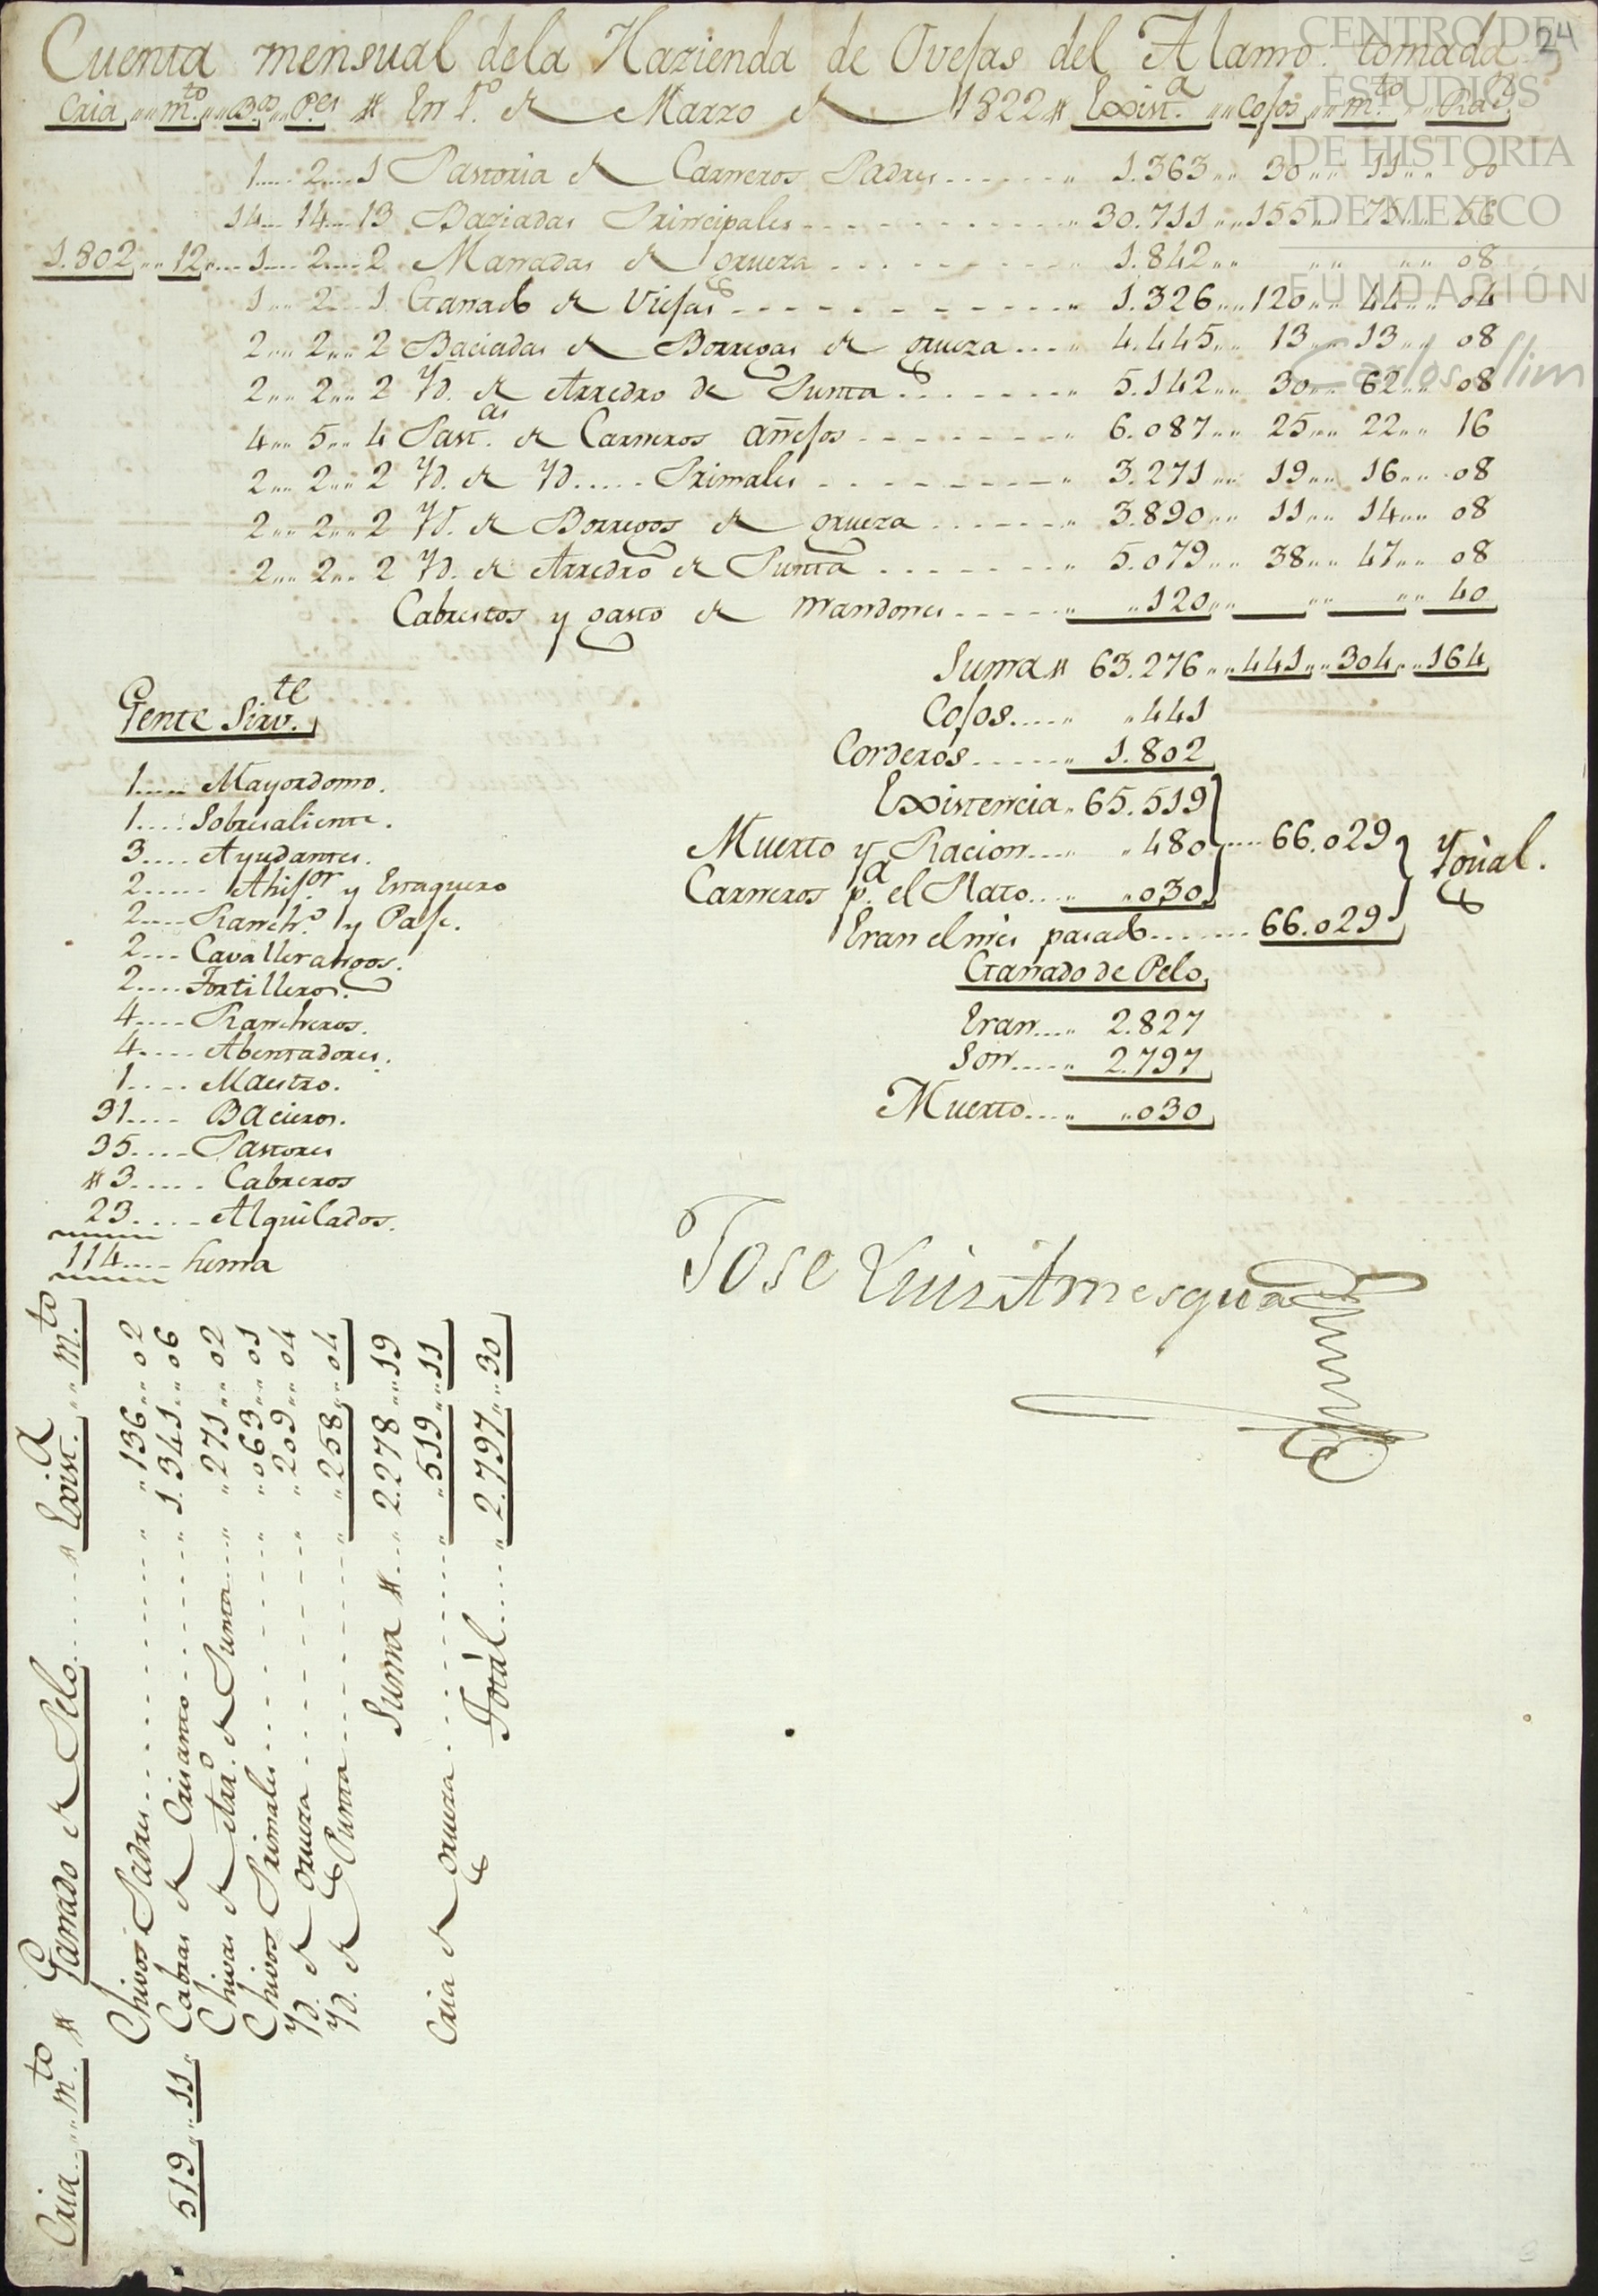 Cuenta mensual dela Hazienda de Ovejas del Alamo. tomada 24
Cria m.to B.os P.es # En 1.o de Marzo de 1822 # Exist.a cojos m.to Rac.n
1 2 1 Pastoria de Carneros Padres 1.363 30 11 00
14 14 13 Baziadas Principales 30.711 155 75 56
1.802 12 1 2 2 Manadas de grueza 1.842 08
1 2 1 Ganado de Viejas 1.326 120 44 04
2 2 2 Baciadas de Borregas de grueza 4.445 13 13 08
2 2 2 Yd. de Arredro de Punta 5.142 30 62 08
4 5 4 Past.as de Carneros añejos 6.087 25 22 16
2 2 2 Yd. de Yd. Primales 3.271 19 16 08
2 2 2 Yd. de Borregos de grueza 3.890 11 14 08
2 2 2 Yd. de Arredro de Punta 5.079 38 47 08
Cabrestos y gasto de mandones 120 40
Suma # 63.276 441 304 164
Cojos 441
Corderos 1.802
Existencia 65.519
Muerto y Racion 480 66.029
Carneros p.a el Plato 030 Ygual.
Eran el mes pasado 66.029
Ganado de Pelo
Eran 2.827
Son 2.797
Muerto 030
Gente Sirv.te
1 Mayordomo.
1 Sobresaliente.
3 Ayudantes.
2 Ahij.or y Entaguero
2 Ranch.o y Paje.
2 Cavallerangos.
2 Tortilleros.
4 Rancheros.
4 Abentadores.
1 Maestro.
31 Bacieros.
35 Pastores
#3 Cabreros
23 Alquilados.
114 suma
Jose Luis Amesqua
Cria m.to # Ganado de Pelo # Exist.a m.to
Chivos Padres 136 02
519 11 Cabras de Crisanto 1.341 06
Chivas de Arr.o de Punta 271 02
Chivos Primales 063 01
Yd. de grueza 209 04
Yd. de Punta 258 04
Suma # 2.278 19
Cria de grueza 519 11
Total 2.797 30
CENTRO DE
ESTUDIOS
DE HISTORIA
DE MEXICO
FUNDACIÓN
Carlos Slim